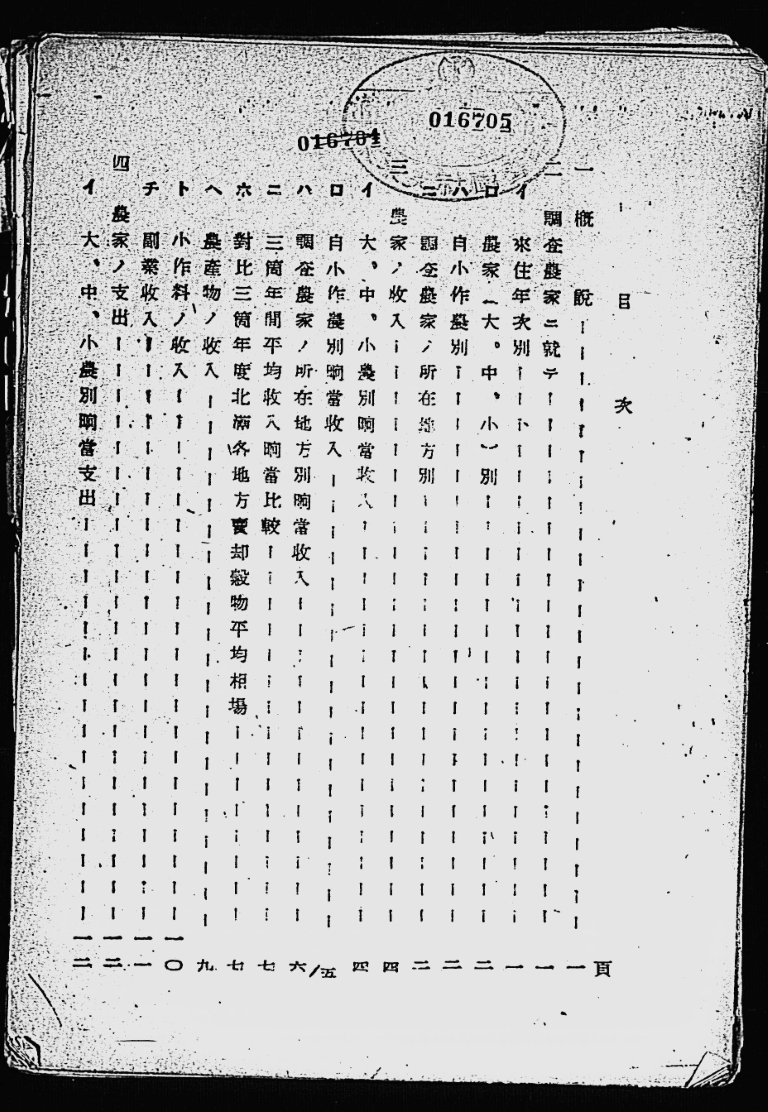 016705
016704
目次
頁
一 概説 一
二 調査農家ニ就テ 一
イ 來住年次別 一
ロ 農家(大。中、小)別 二
ハ 自小作農別 二
ニ 調査農家ノ所在地方別 二
三 農家ノ收入 四
イ 大、中、小農別晌當收入 四
ロ 自小作農別晌當收入 五
ハ 調査農家ノ所在地方別晌當收入 六
ニ 三箇年間平均收入晌當比較 七
ホ 對比三箇年度北滿各地方賣却穀物平均相場 七
ヘ 農產物ノ收入 九
ト 小作料ノ收入 一〇
チ 副業收入 一一
四 農家ノ支出 一二
イ 大、中、小農別晌當支出 一二